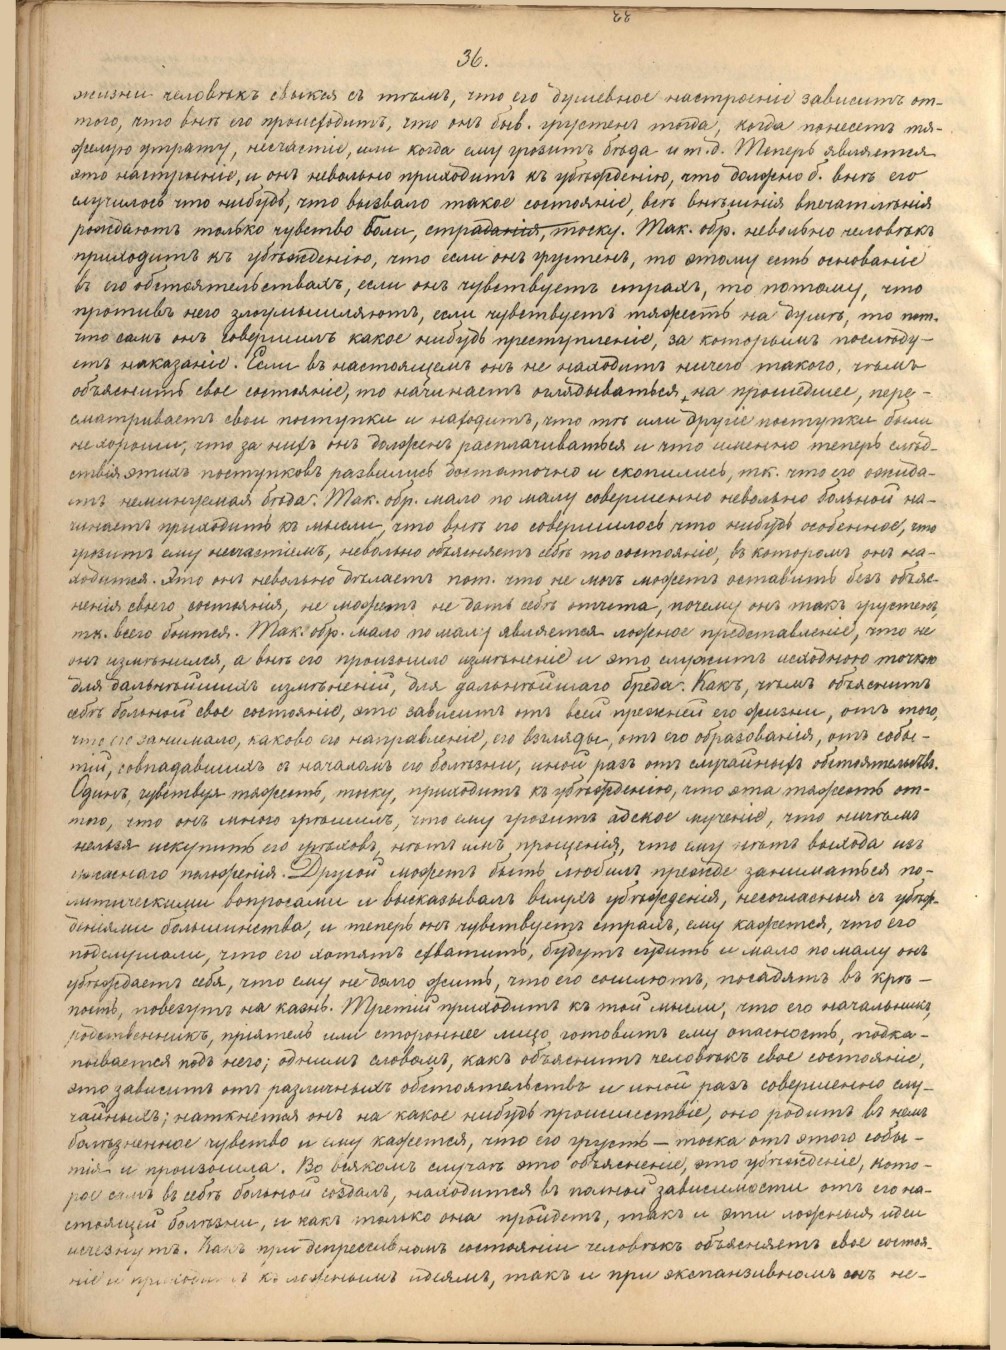 36.
жизни человѣкъ свыкся съ тѣмъ, что его душевное настроеніе зависитъ от-
того, что внѣ его происходитъ, что онъ быв. грустенъ тогда, когда понесетъ тя-
желую утрату, несчастіе, или когда ему грозитъ бѣда и т.д. Теперь является
это настроеніе, и онъ невольно приходитъ къ убѣжденію, что должно б. внѣ его
случилось что нибудь, что вызвало такое состояніе, всѣ внѣшнія впечатлѣнія
рождаютъ только чувство боли, страданія, тоску. Так. обр. невольно человѣкъ
приходитъ къ убѣжденію, что если онъ грустенъ, то этому есть основаніе
въ его обстоятельствахъ, если онъ чувствуетъ страхъ, то потому, что
противъ него злоумышляютъ, если чувствуетъ тяжесть на душѣ, то пот.
что самъ онъ совершилъ какое нибудь преступленіе, за которымъ послѣду-
етъ наказаніе. Если въ настоящемъ онъ не находитъ ничего такого, чѣмъ
объяснить свое состояніе, то начинаетъ оглядываться на прошедшее, пере-
сматриваетъ свои поступки и находитъ, что тѣ или другіе поступки были
не хороши, что за нихъ онъ долженъ расплачиваться и что именно теперь слѣд-
ствія этихъ поступковъ развились достаточно и скопились, тк. что его ожида-
етъ неминуемая бѣда. Так. обр. мало по малу совершенно невольно больной на-
чинаетъ приходить къ мысли, что внѣ его совершилось что нибудь особенное, что
грозитъ ему несчастіемъ, невольно объясняетъ себѣ то состояніе, въ которомъ онъ на-
ходится. Это онъ невольно дѣлаетъ пот. что не могъ можетъ оставить безъ объяс-
ненія своего состоянія, не можетъ не дать себѣ отчета, почему онъ такъ грустенъ,
тк. всего боится. Так. обр. мало по малу является ложное представленіе, что не
онъ измѣнился, а внѣ его произошло измѣненіе и это служитъ исходною точкою
для дальнѣйшихъ измѣненій, для дальнѣйшаго бреда. Какъ, чѣмъ объяснитъ
себѣ больной свое состояніе, это зависитъ отъ всей прежней его жизни, отъ того,
что его занимало, каково его направленіе, его взгляды, отъ его образованія, отъ собы-
тій, совпадавшихъ съ началомъ его болѣзни, иной разъ отъ случайныхъ обстоятельствъ.
Одинъ, чувствуя тяжесть, тоску, приходитъ къ убѣжденію, что эта тяжесть от-
того, что онъ много грѣшилъ, что ему грозитъ адское мученіе, что ничѣмъ
нельзя искупить его грѣховъ, нѣтъ имъ прощенія, что ему нѣтъ выхода изъ
положенія. Другой можетъ быть любилъ прежде заниматься по-
литическими вопросами и высказывалъ вслухъ убѣжденія, несогласныя съ убѣж-
деніями большинства, и теперь онъ чувствуетъ страхъ, ему кажется, что его
подслушали, что его хотятъ схватить, будутъ судить и мало по малу онъ
убѣждаетъ себя, что ему не долго жить, что его сошлютъ, посадятъ въ крѣ-
пость, повезутъ на казнь. Третій приходитъ къ той мысли, что его начальникъ,
родственникъ, пріятель или стороннее лицо готовитъ ему опасность, подка-
пывается подъ него; однимъ словомъ, какъ объяснитъ человѣкъ свое состояніе,
это зависитъ отъ различныхъ обстоятельствъ и иной разъ совершенно слу-
чайныхъ; наткнется онъ на какое нибудь происшествіе, оно родитъ въ немъ
болѣзненное чувство и ему кажется, что его грусть – тоска отъ этого собы-
тія и произошла. Во всякомъ случаѣ это объясненіе, это убѣжденіе, кото-
рое самъ въ себѣ больной создалъ, находится въ полной зависимости отъ его на-
стоящей болѣзни, и какъ только она пройдетъ, такъ и эти ложныя идеи
исчезнутъ. Какъ при депрессивномъ состояніи человѣкъ объясняетъ свое состоя-
ніе и приходитъ къ ложнымъ идеямъ, такъ и при экспансивномъ онъ не-